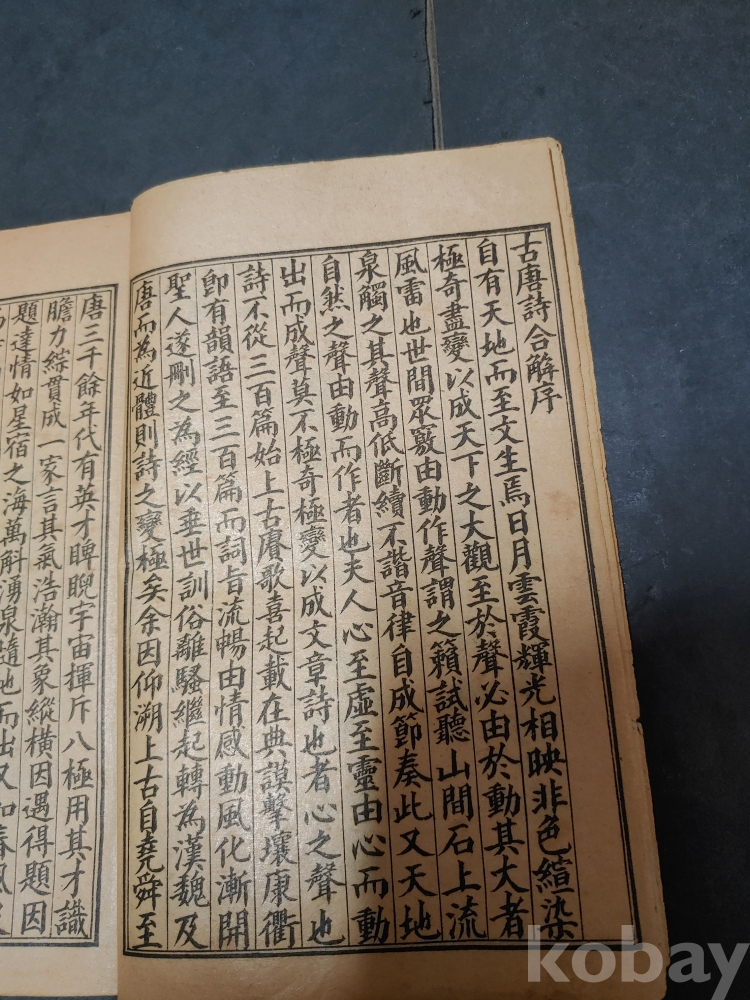 古唐詩合解序
自有天地而至文生焉日月雲霞輝光相映非色縇染
極奇盡變以成天下之大觀至於聲必由於動其大者
風雷也世間眾竅由動作聲謂之籟試聽山間石上流
泉觸之其聲高低斷續不諧音律自成節奏此又天地
自然之聲由動而作者也夫人心至虛至靈由心而動
出而成聲莫不極奇極變以成文章詩也者心之聲也
詩不從三百篇始上古賡歌喜起載在典謨擊壤康衢
即有韻語至三百篇而詞旨流暢由情感動風化漸開
聖人遂刪之為經以垂世訓俗離騷繼起轉為漢魏及
唐而為近體則詩之變極矣余因仰溯上古自堯舜至
唐三千餘年代有英才睥睨宇宙揮斥八極用其才識
膽力綜貫成一家言其氣浩瀚其象縱橫因遇得題因
題達情如星宿之海萬斛湧泉隨地而出又如春風
kobay